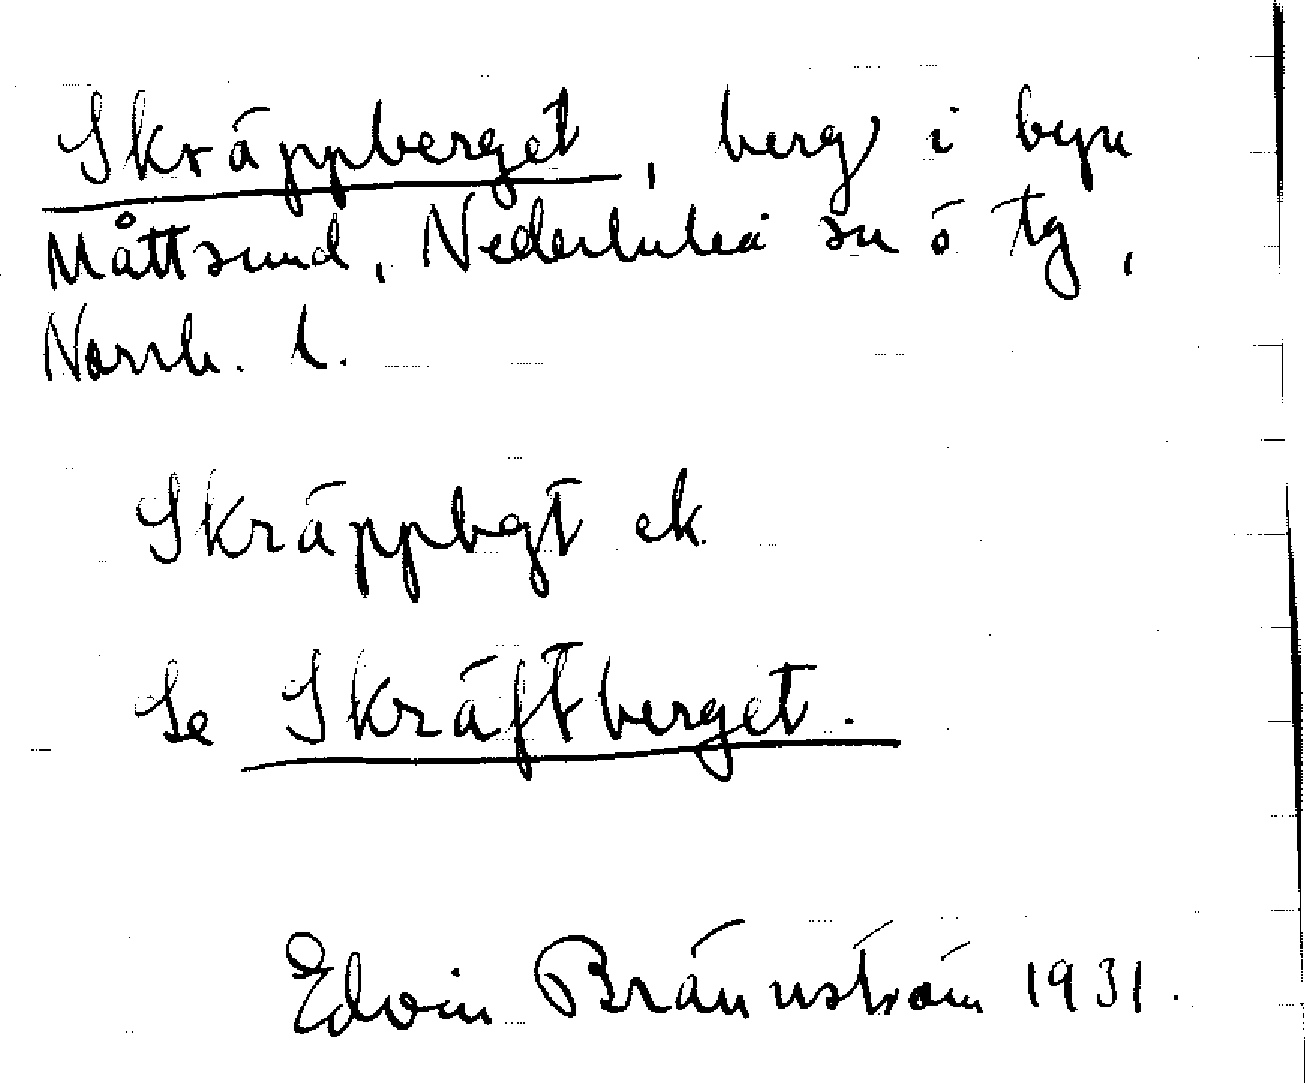 Skräppberget, berg i byn
Måttsund, Nederluleå sn o tg,
Norrb. l.
Skräppbgt ek
Se Skräftberget.
Edvin Brännström 1931.